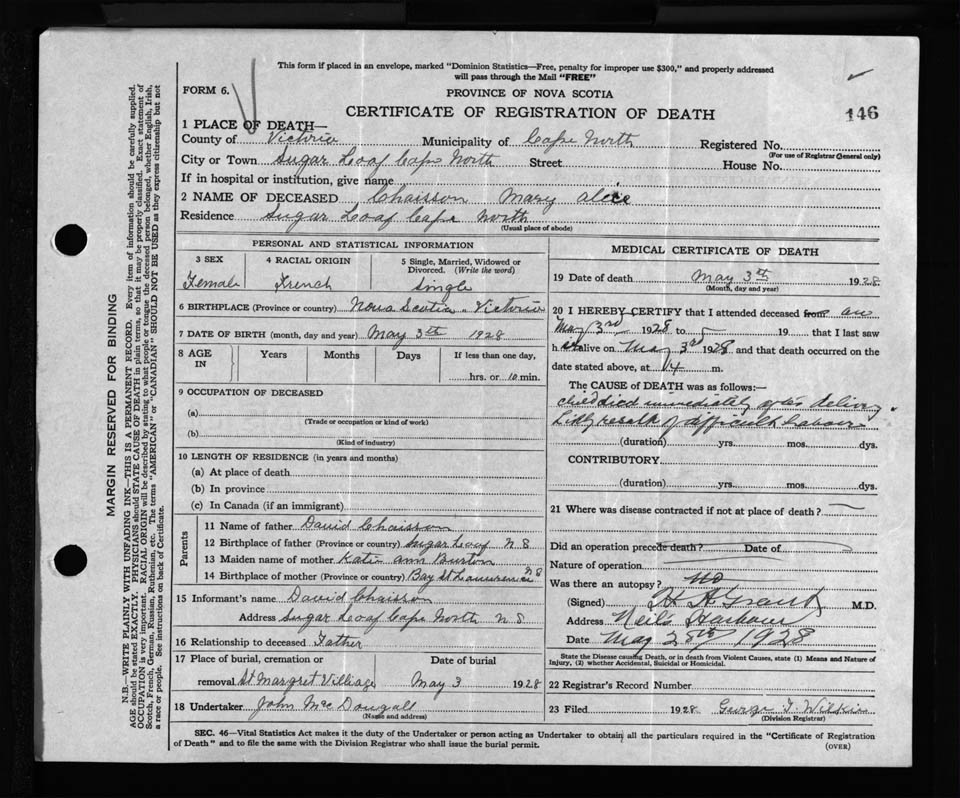 This form if placed in an envelope, marked "Dominion Statistics—Free, penalty for improper use $300," and properly addressed
will pass through the Mail "FREE"
FORM 6.
PROVINCE OF NOVA SCOTIA
CERTIFICATE OF REGISTRATION OF DEATH
146
1 PLACE OF DEATH—
County of Victoria Municipality of Cape North Registered No.
(For use of Registrar General only)
City or Town Sugar Loaf Cape North Street House No.
If in hospital or institution, give name
2 NAME OF DECEASED Chaisson Mary Alice
Residence Sugar Loaf Cape North
(Usual place of abode)
MARGIN RESERVED FOR BINDING
N.B.—WRITE PLAINLY WITH UNFADING INK—THIS IS A PERMANENT RECORD. Every item of information should be carefully supplied.
AGE should be stated EXACTLY. PHYSICIANS should STATE CAUSE OF DEATH in plain terms, so that it may be properly classified. Exact statement of
OCCUPATION is very important. RACIAL ORIGIN will be described by stating to what people or tongue the deceased person belonged, whether English, Irish,
Scotch, French, German, Russian, Ruthenian, etc. The terms "AMERICAN" or "CANADIAN" SHOULD NOT BE USED as they express citizenship but not
a race or people. See instructions on back of Certificate.
PERSONAL AND STATISTICAL INFORMATION
3 SEX
Female
4 RACIAL ORIGIN
French
5 Single, Married, Widowed or
Divorced. (Write the word)
Single
6 BIRTHPLACE (Province or country) Nova Scotia - Victoria
7 DATE OF BIRTH (month, day and year) May 3th 1928
8 AGE
IN
Years Months Days If less than one day,
hrs. or 10 min.
9 OCCUPATION OF DECEASED
(a)
(Trade or occupation or kind of work)
(b)
(Kind of industry)
10 LENGTH OF RESIDENCE (in years and months)
(a) At place of death
(b) In province
(c) In Canada (if an immigrant)
Parents
11 Name of father David Chaisson
12 Birthplace of father (Province or country) Sugar Loaf N S
13 Maiden name of mother Katie Ann Burton
14 Birthplace of mother (Province or country) Bay St Lawrence N S
15 Informant's name David Chaisson
Address Sugar Loaf Cape North N S
16 Relationship to deceased Father
17 Place of burial, cremation or Date of burial
removal St Margret Villiage May 3 1928
18 Undertaker John Mc Dougall
(Name and address)
MEDICAL CERTIFICATE OF DEATH
19 Date of death May 3th 1928
(Month, day and year)
20 I HEREBY CERTIFY that I attended deceased from on
May 3rd 1928 to 19 that I last saw
h er alive on May 3rd 1928 and that death occurred on the
date stated above, at 14 m.
The CAUSE of DEATH was as follows:—
child died immediately after delivery.
Likly result of difficult Labour
(duration) yrs. mos. dys.
CONTRIBUTORY
(duration) yrs. mos. dys.
21 Where was disease contracted if not at place of death?
Did an operation precede death? Date of
Nature of operation
Was there an autopsy? no
(Signed) H A Grant M.D.
Address Neils Harbour
Date May 28th 1928
State the Disease causing Death, or in death from Violent Causes, state (1) Means and Nature of
Injury, (2) whether Accidental, Suicidal or Homicidal.
22 Registrar's Record Number
23 Filed 1928 George T Wilkie
(Division Registrar)
SEC. 46—Vital Statistics Act makes it the duty of the Undertaker or person acting as Undertaker to obtain all the particulars required in the "Certificate of Registration
of Death" and to file the same with the Division Registrar who shall issue the burial permit.
(OVER)